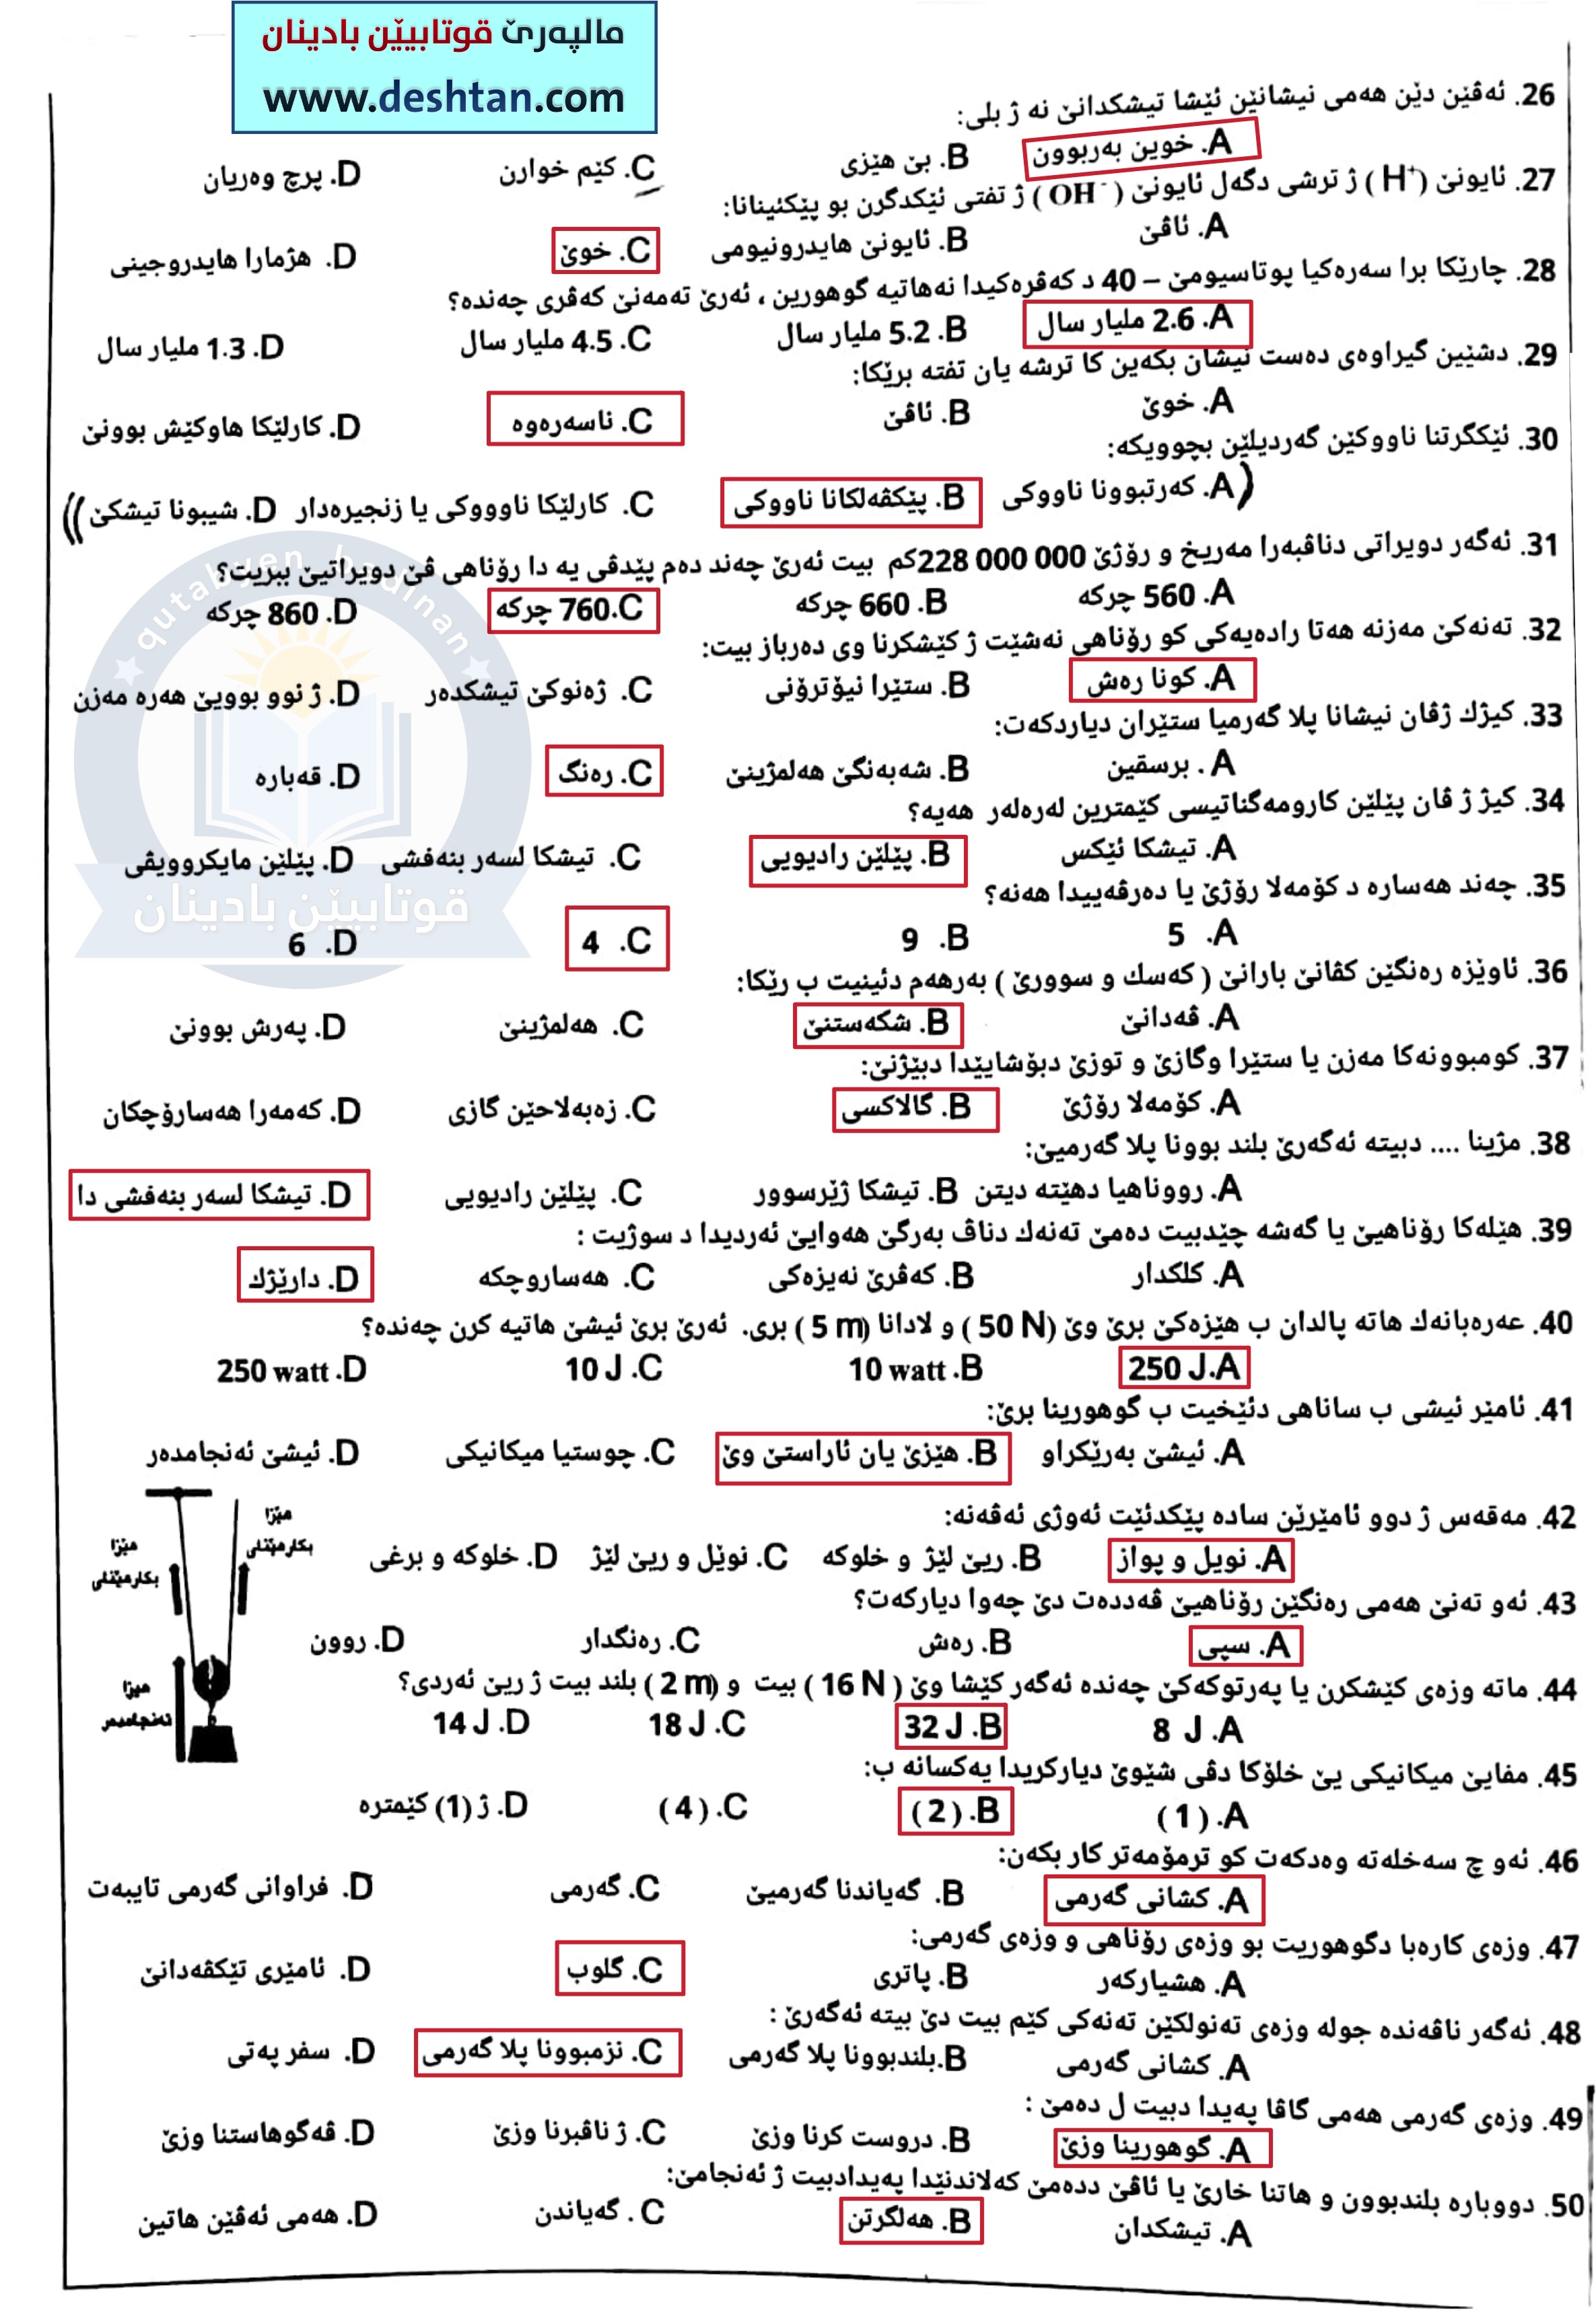 مالپەرێ قوتابیێن بادینان
www.deshtan.com
26. ئەڤێن دێن هەمی نیشانێن ئێشا تیشکدانێ نە ژ بلی:
A. خوین بەربوون B. بێ هێزی C. کێم خوارن D. پرچ وەریان
27. ئایونێ (H⁺) ژ ترشی دگەل ئایونێ (OH⁻) ژ تفتی ئێکدگرن بو پێکئینانا:
A. ئاڤێ B. ئایونێ هایدرونیومی C. خوێ D. هژمارا هایدروجینی
28. چارێکا برا سەرەکیا پوتاسیومێ – 40 د کەڤرەکیدا نەهاتیە گوهورین ، ئەرێ تەمەنێ کەڤری چەندە؟
A. 2.6 ملیار سال B. 5.2 ملیار سال C. 4.5 ملیار سال D. 1.3 ملیار سال
29. دشێین گیراوەی دەست نیشان بکەین کا ترشە یان تفتە برێکا:
A. خوێ B. ئاڤێ C. ناسەرەوە D. کارلێکا هاوکێش بوونێ
30. ئێکگرتنا ناووکێن گەردیلێن بچوویکە:
A. کەرتبوونا ناووکی B. پێکڤەلکانا ناووکی C. کارلێکا ناوووکی یا زنجیرەدار D. شیبونا تیشکێ
31. ئەگەر دویراتی دناڤبەرا مەریخ و رۆژێ 228 000 000کم بیت ئەرێ چەند دەم پێدڤی یە دا رۆناهی ڤێ دویراتیێ ببریت؟
A. 560 چرکە B. 660 چرکە C.760 چرکە D. 860 چرکە
32. تەنەکێ مەزنە هەتا رادەیەکی کو رۆناهی نەشێت ژ کێشکرنا وی دەرباز بیت:
A. کونا رەش B. ستێرا نیۆترۆنی C. ژەنوکێ تیشکدەر D. ژ نوو بوویێ هەرە مەزن
33. کیژك ژڤان نیشانا پلا گەرمیا ستێران دیاردکەت:
A . برسقین B. شەبەنگێ هەلمژینێ C. رەنگ D. قەبارە
34. کیژ ژ ڤان پێلێن کارومەگناتیسی کێمترین لەرەلەر هەیە؟
A. تیشکا ئێکس B. پێلێن رادیویی C. تیشکا لسەر بنەفشی D. پێلێن مایکروویڤی
35. چەند هەسارە د کۆمەلا رۆژێ یا دەرڤەییدا هەنە؟
A. 5 B. 9 C. 4 D. 6
36. ئاوێزە رەنگێن کڤانێ بارانێ ( کەسك و سوورێ ) بەرهەم دئینیت ب رێکا:
A. ڤەدانێ B. شکەستنێ C. هەلمژینێ D. پەرش بوونێ
37. کومبوونەکا مەزن یا ستێرا وگازێ و توزێ دبۆشاییدا دبێژنێ:
A. کۆمەلا رۆژێ B. گالاکسی C. زەبەلاحێن گازی D. کەمەرا هەسارۆچکان
38. مژینا .... دبیتە ئەگەرێ بلند بوونا پلا گەرمیێ:
A. رووناهیا دهێتە دیتن B. تیشکا ژێرسوور C. پێلێن رادیویی D. تیشکا لسەر بنەفشی دا
39. هێلەکا رۆناهیێ یا گەشە چێدبیت دەمێ تەنەك دناڤ بەرگێ هەوایێ ئەردیدا د سوژیت :
A. کلکدار B. کەڤرێ نەیزەکی C. هەساروچکە D. دارێژك
40. عەرەبانەك هاتە پالدان ب هێزەکێ برێ وێ (50 N ) و لادانا (5 m ) بری. ئەرێ برێ ئیشێ هاتیە کرن چەندە؟
250 J.A 10 watt .B 10 J .C 250 watt .D
41. ئامێر ئیشی ب ساناهی دئێخیت ب گوهورینا برێ:
A. ئیشێ بەرێکراو B. هێزێ یان ئاراستێ وێ C. چوستیا میکانیکی D. ئیشێ ئەنجامدەر
42. مەقەس ژ دوو ئامێرێن سادە پێکدئێت ئەوژی ئەڤەنە:
A. نویل و پواز B. ریێ لێژ و خلوکە C. نوێل و ریێ لێژ D. خلوکە و برغی
هێزا
بکارهێنانی
هێزا
بکارهێنانی
43. ئەو تەنێ هەمی رەنگێن رۆناهیێ ڤەددەت دێ چەوا دیارکەت؟
A. سپی B. رەش C. رەنگدار D. روون
هێزا
44. ماتە وزەی کێشکرن یا پەرتوکەکێ چەندە ئەگەر کێشا وێ ( 16 N ) بیت و (2 m ) بلند بیت ژ ریێ ئەردی؟
8 J .A 32 J .B 18 J .C 14 J .D
45. مفایێ میکانیکی یێ خلۆکا دڤی شێوێ دیارکریدا یەکسانە ب:
A. ( 1 ) B. ( 2 ) C. ( 4 ) D. ژ (1) کێمترە
46. ئەو چ سەخلەتە وەدکەت کو ترمۆمەتر کار بکەن:
A. کشانی گەرمی B. گەیاندنا گەرمیێ C. گەرمی D. فراوانی گەرمی تایبەت
47. وزەی کارەبا دگوهوریت بو وزەی رۆناهی و وزەی گەرمی:
A. هشیارکەر B. پاتری C. گلوب D. ئامێری تێکڤەدانێ
48. ئەگەر ناڤەندە جولە وزەی تەنولکێن تەنەکی کێم بیت دێ بیتە ئەگەرێ :
A. کشانی گەرمی B.بلندبوونا پلا گەرمی C. نزمبوونا پلا گەرمی D. سفر پەتی
49. وزەی گەرمی هەمی گاڤا پەیدا دبیت ل دەمێ :
A. گوهورینا وزێ B. دروست کرنا وزێ C. ژ ناڤبرنا وزێ D. ڤەگوهاستنا وزێ
50. دووبارە بلندبوون و هاتنا خارێ یا ئاڤێ ددەمێ کەلاندنێدا پەیدادبیت ژ ئەنجامێ:
A. تیشکدان B. هەلگرتن C . گەیاندن D. هەمی ئەڤێن هاتین
qutabyen badinan
قوتابیێن بادینان